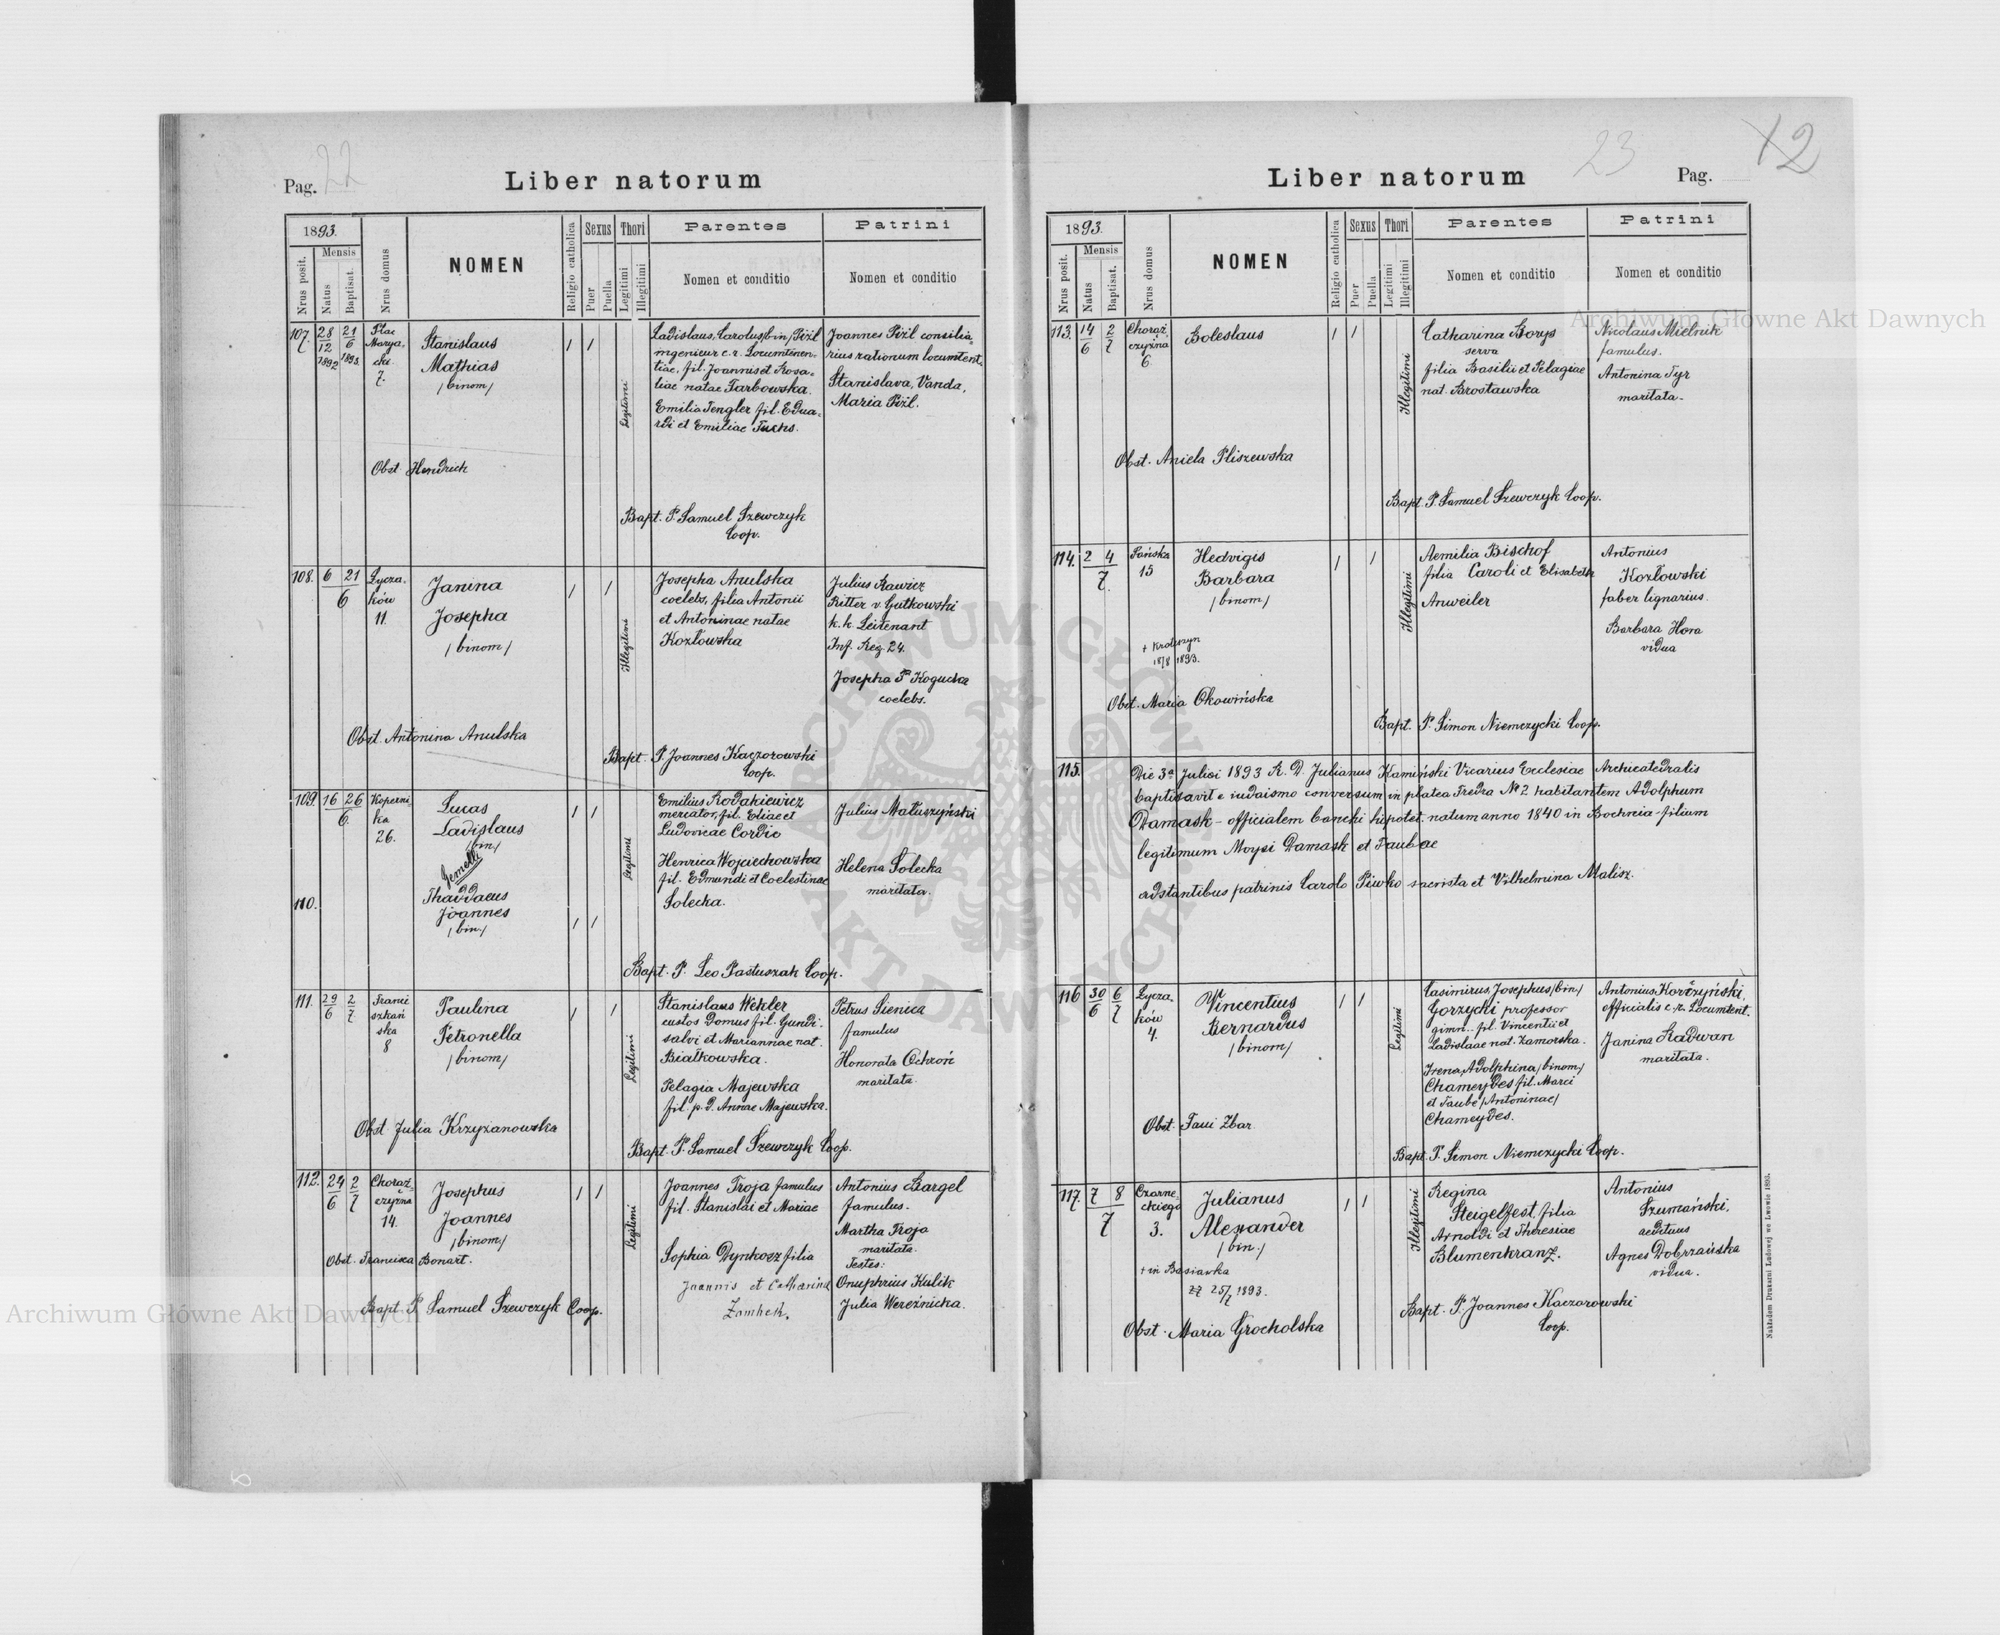 Pag. 22
Liber natorum
1893.
Nrus posit.
Mensis
Natus
Baptisat.
Nrus domus
NOMEN
Religio catholica
Sexus
Puer
Puella
Thori
Legitimi
Illegitimi
Parentes
Nomen et conditio
Patrini
Nomen et conditio
107.
28/12 1892
21/6 1893.
Plac
Marya-
cki
7.
Stanislaus
Mathias
/binom/
Legitimi
Ladislaus, Carolus /bin/ Piżl
ingenieur c. r. Locumtenen-
tiae, fil. Joannis et Rosa-
liae natae Tarbowska.
Emilia Tengler fil. Edua-
rdi et Emiliae Fuchs.
Joannes Piżl consilia-
rius rationum locumtent.
Stanislava, Vanda,
Maria Piżl.
Obst. Hendrich
Bapt. P. Samuel Szewczyk
Coop.
108.
6 21
6
Łycza-
ków
11.
Janina
Josepha
/binom/
Illegitimi
Josepha Anulska
coelebs, filia Antonii
et Antoninae natae
Kozłowska
Julius Rawicz
Ritter v. Gutkowski
k. k. Leitenant
Inf. Reg. 24.
Josepha Kogucka
coelebs.
Obst. Antonina Anulska
Bapt. P. Joannes Kaczorowski
Coop.
109.
16 26
6.
Koperni
ka
26.
Lucas
Ladislaus
/bin/
Gemelli
110.
Thaddaeus
Joannes
/bin./
Legitimi
Emilius Rodakiewicz
mercator, fil. Eliae et
Ludovicae Cordie
Henrica Wojciechowska
fil. Edmundi et Coelestinae
Solecka.
Julius Matuszyński
Helena Solecka
maritata.
Bapt. P. Leo Pastuszak Coop.
111.
29/6
2/7
Franci
szkań
ska
8
Paulina
Petronella
/binom/
Legitimi
Stanislaus Wekler
custos domus fil. Gundi-
salvi et Mariannae nat.
Białkowska.
Pelagia Majewska
fil. p. d. Annae Majewska.
Petrus Sienica
famulus
Honorata Ochroń
maritata.
Obst. Julia Krzyżanowska
Bapt. P. Samuel Szewczyk Coop.
112.
24/6
2/7
Chorąż
czyzna
14.
Josephus
Joannes
/binom/
Legitimi
Joannes Troja famulus
fil. Stanislai et Mariae
Sophia Dynkocz filia
Joannis et Catharinā
Zamhek.
Antonius Bargel
famulus.
Martha Troja
maritata.
Testes:
Onuphrius Kulik
Julia Wereźnicka.
Obst. Francisca Bonart.
Bapt. P. Samuel Szewczyk Coop.
23 12
Liber natorum
Pag.
1893.
Nrus posit.
Mensis
Natus
Baptisat.
Nrus domus
NOMEN
Religio catholica
Sexus
Puer
Puella
Thori
Legitimi
Illegitimi
Parentes
Nomen et conditio
Patrini
Nomen et conditio
113.
14/6
2/7
Chorąż
czyzna
6.
Boleslaus
Illegitimi
Catharina Borys
serva
filia Basilii et Pelagiae
nat. Brosławska
Nicolaus Mielnik
famulus.
Antonina Tyr
maritata.
Obst. Aniela Pliszewska
Bapt. P. Samuel Szewczyk Coop.
114.
2 4
7.
Pańska
15
Hedvigis
Barbara
/binom/
Illegitimi
Aemilia Bischof
filia Caroli et Elisabeth
Anweiler
Antonius
Kozłowski
faber lignarius.
Barbara Hora
vidua
+ Krotoszyn
18/8 1893.
Obst. Maria Okowińska
Bapt. P. Simon Niemczycki Coop.
115.
Die 3a Julii 1893 R. D. Julianus Kamiński Vicarius Ecclesiae Archicatedralis
baptisavit e iudaismo conversum in platea Fredra № 2 habitantem Adolphum
Damask - officialem banchi hipotet. natum anno 1840 in Bochnia - filium
legitimum Moysi Damask et Taubae
adstantibus patrinis Carolo Piwko sacrista et Vilhelmina Malisz.
116
30/6
6/7
Łycza-
ków
4.
Vincentius
Bernardus
/binom/
Legitimi
Casimirus, Josephus /bin/
Gorzycki professor
gimn. fil. Vincentii et
Ladislaae nat. Zamorska.
Irena, Adolphina /binom/
Chameydes fil. Marci
et Taube /Antoninae/
Chameydes.
Antonius Korczyński,
officialis c. r. Locumtent.
Janina Kadwan
maritata.
Obst. Taui Zbar
Bapt. P. Simon Niemczycki Coop.
117.
7 8
7
Czarne-
ckiego
3.
Julianus
Alexander
/bin./
Illegitimi
Regina
Steigelfest, filia
Arnoldi et Theresiae
Blumenkranz.
Antonius
Szumański,
aedituus
Agnes Dobrzańska
vidua.
+ in Basiowka
25/7 1893.
Obst. Maria Grocholska
Bapt. P. Joannes Kaczorowski
Coop.
Nakładem Drukarni Ludowej we Lwowie 1893.
Archiwum Główne Akt Dawnych
Archiwum Główne Akt Dawnych
ARCHIWUM GŁÓWNE AKT DAWNYCH